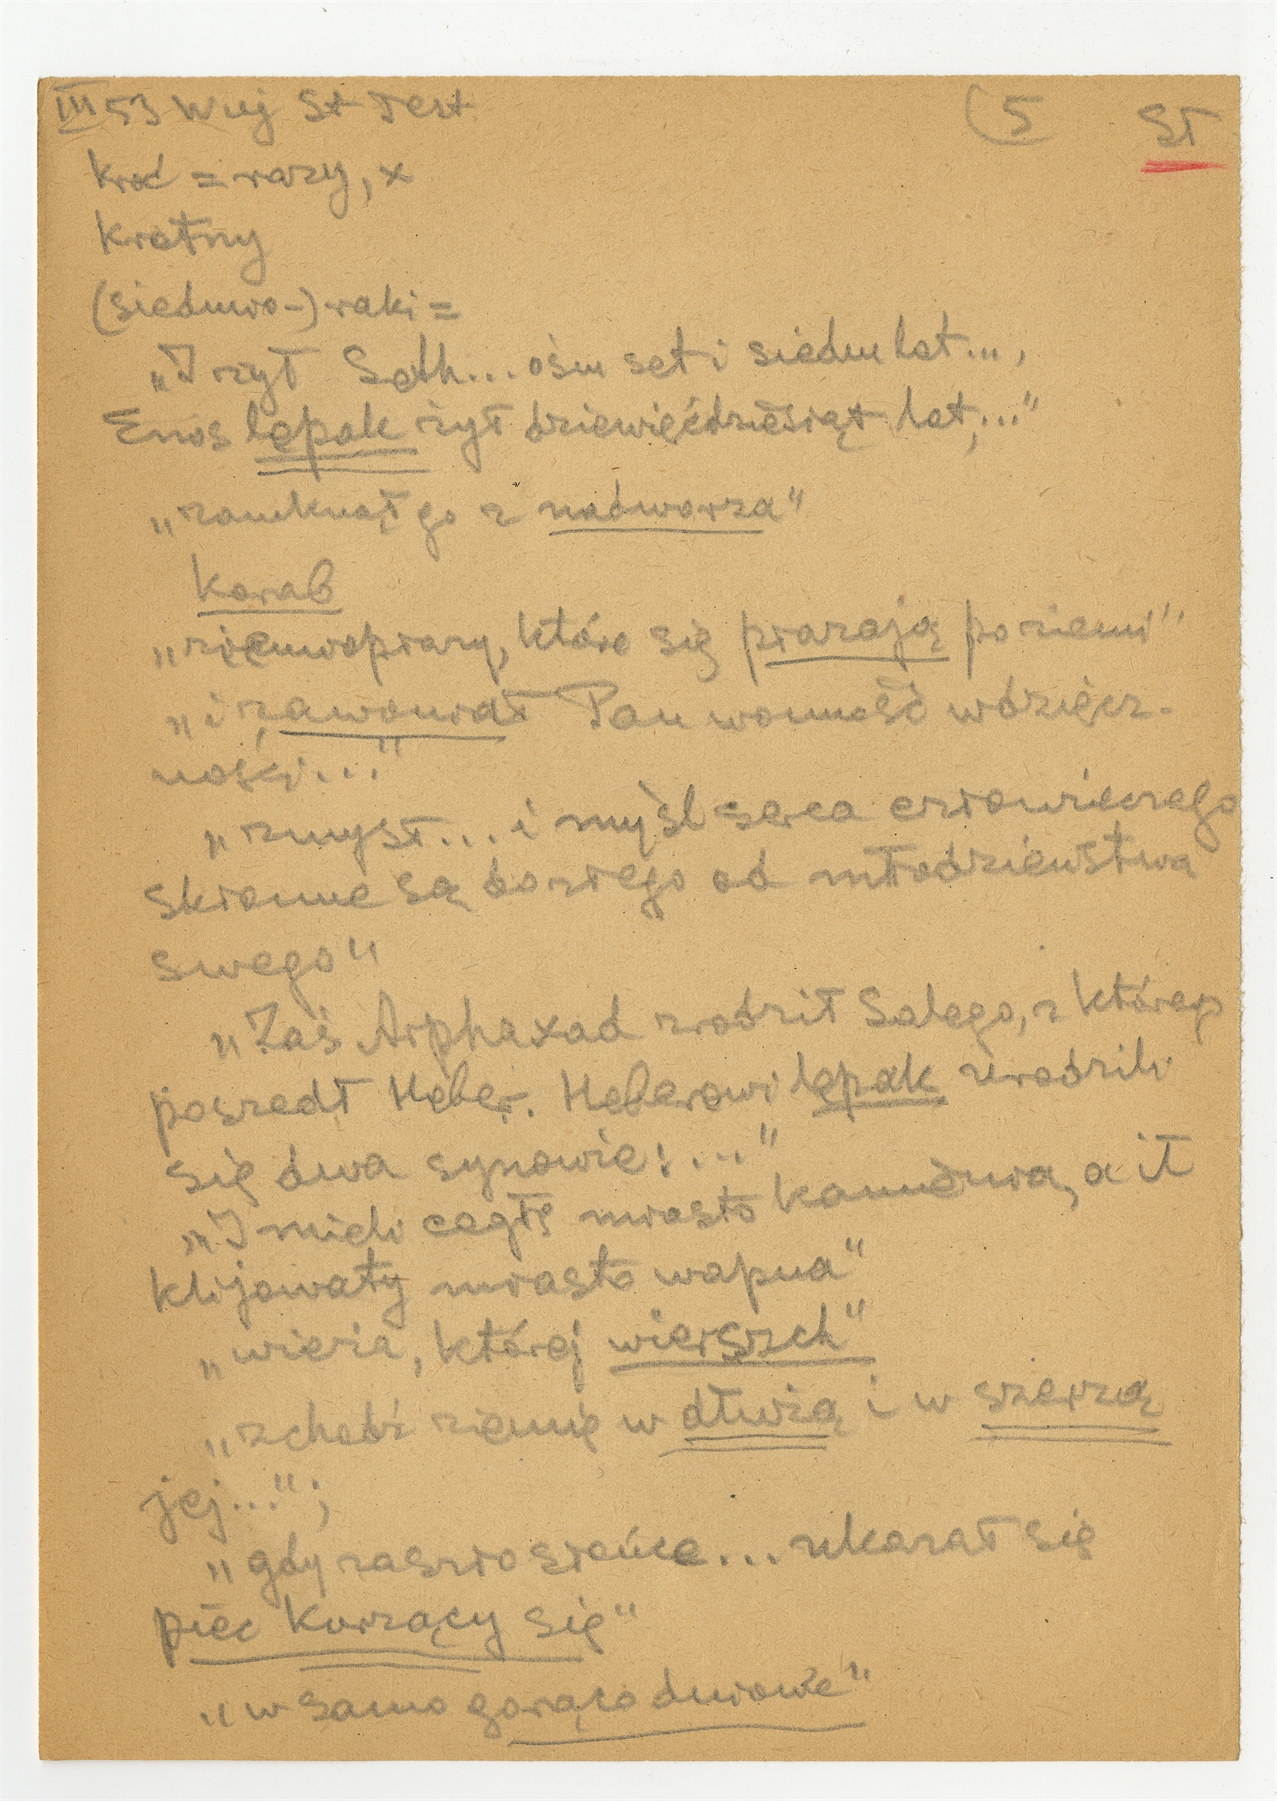 III 53 Wuj St Test (5 ST
kroć = razy, x
kratny
(siedmio-) raki =
„I żył Seth... ośm set i siedm lat...,
Enos lepak żył dziewięćdziesiąt lat,..."
„zamknął go z nadworza"
Korab
„ziemiopłazy, które się płazają po ziemi"
„i zawoniał Pan wonność wdzięcz-
ności..."
„zmysł... i myśl serca człowieczego
skłonne są do złego od młodzieństwa
swego"
„Zaś Arphaxad zrodził Salego, z którego
poszedł Heber. Heberowi lepak urodzili
się dwa synowie:..."
„I mieli cegłę miasto kamienia, a ił
klijowaty miasto wapna"
„wieża, której wierszch"
„zchodź ziemię w dłużą i w szerzą
jej...";
„gdy zaszło słońce... ukazał się
piec kurzący się"
„w samo gorąco dniowe"